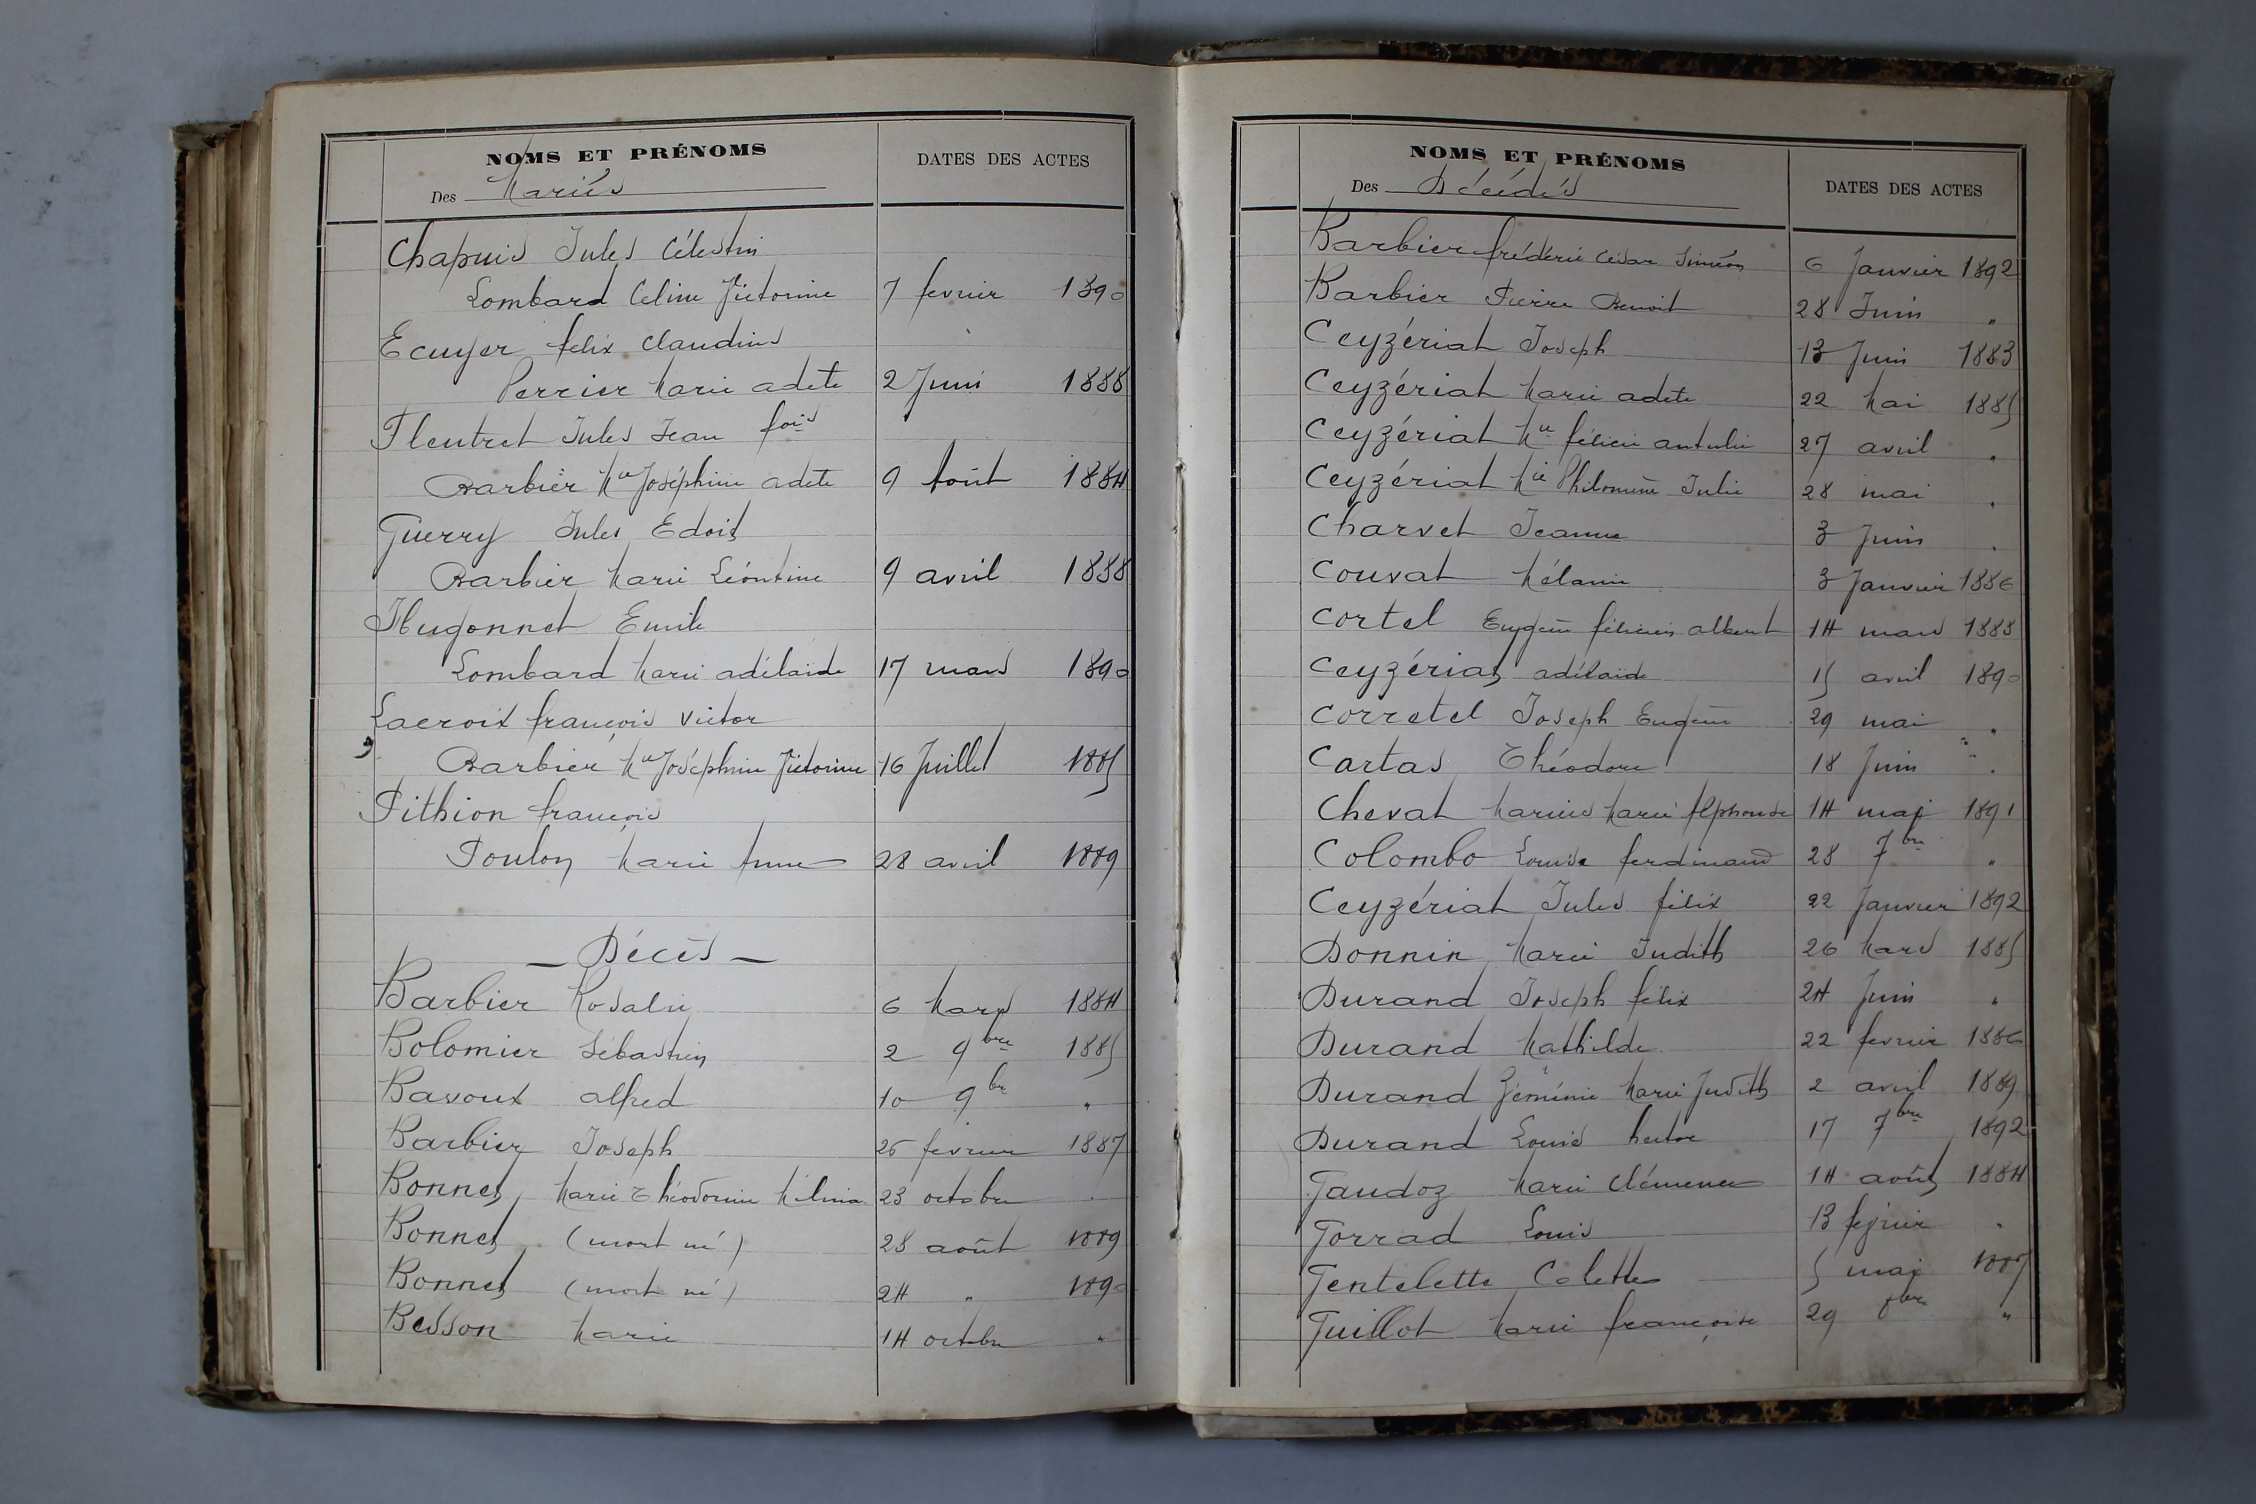 NOMS ET PRÉNOMS
DATES DES ACTES
Des Mariés
Chapuis Jules Célestin
Lombard Celine Victorine 7 fevrier 1890
Ecuyer felix Claudius
Perrier Marie adele 2 Juin 1888
Fleutret Jules Jean fois
Barbier Mie Joséphine adele 9 Août 1884
Guerry Jules
Barbier Marie Léontine 9 avril 1888
Hugonnet Emile
Lombard Marie adélaide 17 mars 1890
Lacroix françois Victor
Barbier Mie Joséphine Victorine 16 Juillet 1885
Pithion françois
Poulon Marie Anne 28 avril 1889
— Décès —
Barbier Rosalie 6 Mars 1884
Bolomier Sébastien 2 9bre 1885
Bavoux alfred 10 9bre "
Barbier Joseph 26 fevrier 1887
Bonnet Marie Théodorine 23 octobre "
Bonnet (mort né) 28 août 1889
Bonnet (mort né) 24 " 1890
Besson Marie 14 octobre "
NOMS ET PRÉNOMS
DATES DES ACTES
Des Décédés
Barbier frédéric César Siméon 6 Janvier 1892
Barbier Pierre Benoit 28 Juin "
Ceyzériat Joseph 13 Juin 1883
Ceyzériat Marie adele 22 Mai 1885
Ceyzériat Mie félicie 27 avril "
Ceyzériat Mie Philomène Julie 28 mai "
Charvet Jeanne 3 Juin "
Couvat Mélanie 3 Janvier 1886
Cortel Eugène félicien albert 14 mars 1888
Ceyzériat adélaïde 15 avril 1890
Corretel Joseph Eugène 29 mai "
Cartas Théodore 18 Juin "
Chevat Marius Marie Alphonse 14 mai 1891
Colombo Louis ferdinand 28 7bre "
Ceyzériat Jules félix 22 Janvier 1892
Donnin Marie Judith 26 Mars 1885
Durand Joseph félix 24 Juin "
Durand Mathilde 22 fevrier 1886
Durand Marie Judith 2 avril 1889
Durand Louis hector 17 7bre 1892
Gaudoz Marie Clémence 14 août 1884
Gorrad Louis 13 fevrier "
Gentelette Colette 5 mai 1887
Guillot Marie françoise 29 "